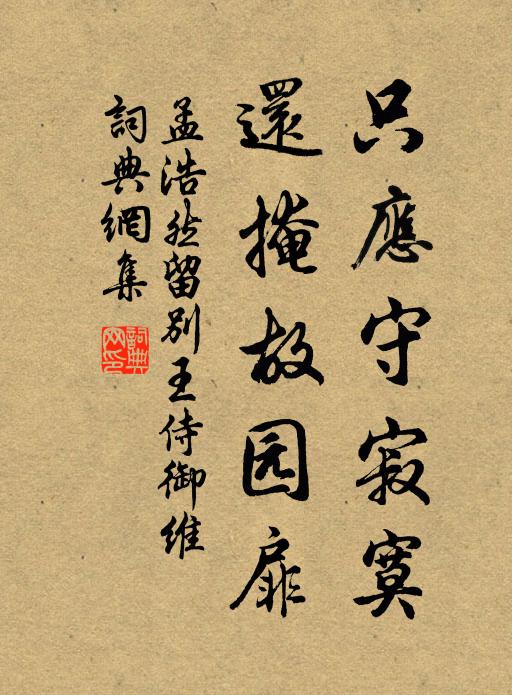 只應守寂寞
還掩故园扉
孟浩然留别王侍御維
詞典網集
詞典網印